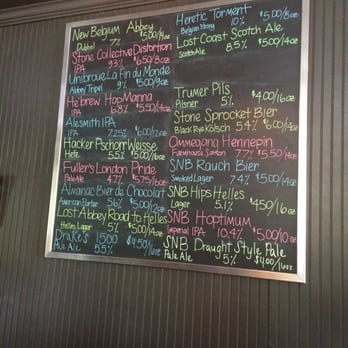 New Belgium Abbey
Dubbel 7% $5.00/
Stone Collective Distortion
IPA 9.3% $6.50/8oz
Unibroue La fin du Monde
Abbey Tripel 9% $5.00/9oz
Hebrew Hop Manna
IPA 6.8% $5.50/14oz
Alesmith IPA
IPA 7.25% $6.00/12oz
Hacker Pschorr Weisse
Hefe 5.5% $5.00/16oz
Fuller's London Pride
Pale Ale 4.7% $5.75/16oz
Almanac Bier de Chocolat
American Porter 5.6% $5.00/12oz
Lost Abbey Road to Helles
Helles Lager 5% $5.00/14oz
Drake's 1500
Pale Ale 5.5% $4.50/16oz
Heretic Torment
Belgian Strong 10% $5.00/8oz
Lost Coast Scotch Ale
Scotch Ale 8.5% $5.00/14oz
Trumer Pils
Pilsner 5% $4.00/16oz
Stone Sprocket Bier
Black Rye Kölsch 5.4% $6.00/14oz
Ommegang Hennepin
Farmhouse Saison 7.7% $5.50/14oz
SNB Rauch Bier
Smoked Lager 7.4% $5.00/14oz
SNB Hips Helles
Lager 5.1% 4.50/16oz
SNB Hoptimum
Imperial IPA 10.4% $5.00/10oz
SNB Draught Style Pale
Pale Ale 5% $4.00/16oz